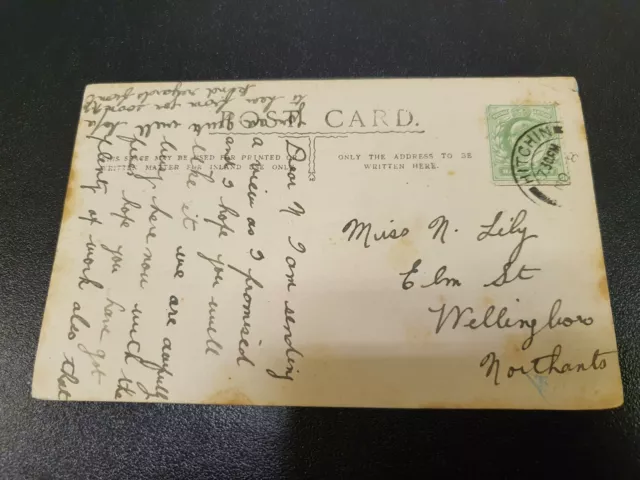 POST CARD.
THIS SPACE MAY BE USED FOR PRINTED OR
WRITTEN MATTER FOR INLAND USE ONLY.
ONLY THE ADDRESS TO BE
WRITTEN HERE.
HITCHIN
Miss N. Lily
Elm St
Wellingboro
Northants
Dear N I am sending
a view as I promised
and I hope you will
like it we are awfully
busy here now much the
hope you have got
plenty of work also that
quite well
to hear from you soon
kind regards from